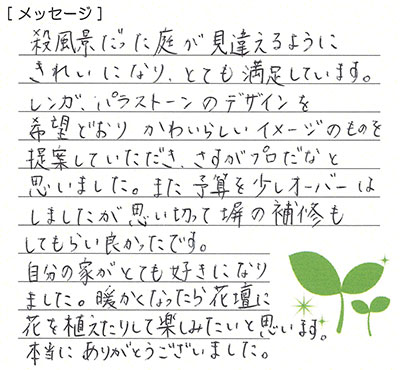 [メッセージ]
殺風景だった庭が見違えるように
きれいになり、とても満足しています。
レンガ、パラストーンのデザインを
希望どおりかわいらしいイメージのものを
提案していただき、さすがプロだなと
思いました。また予算を少しオーバーは
しましたが思い切って塀の補修も
してもらい良かったです。
自分の家がとても好きになり
ました。暖かくなったら花壇に
花を植えたりして楽しみたいと思います。
本当にありがとうございました。